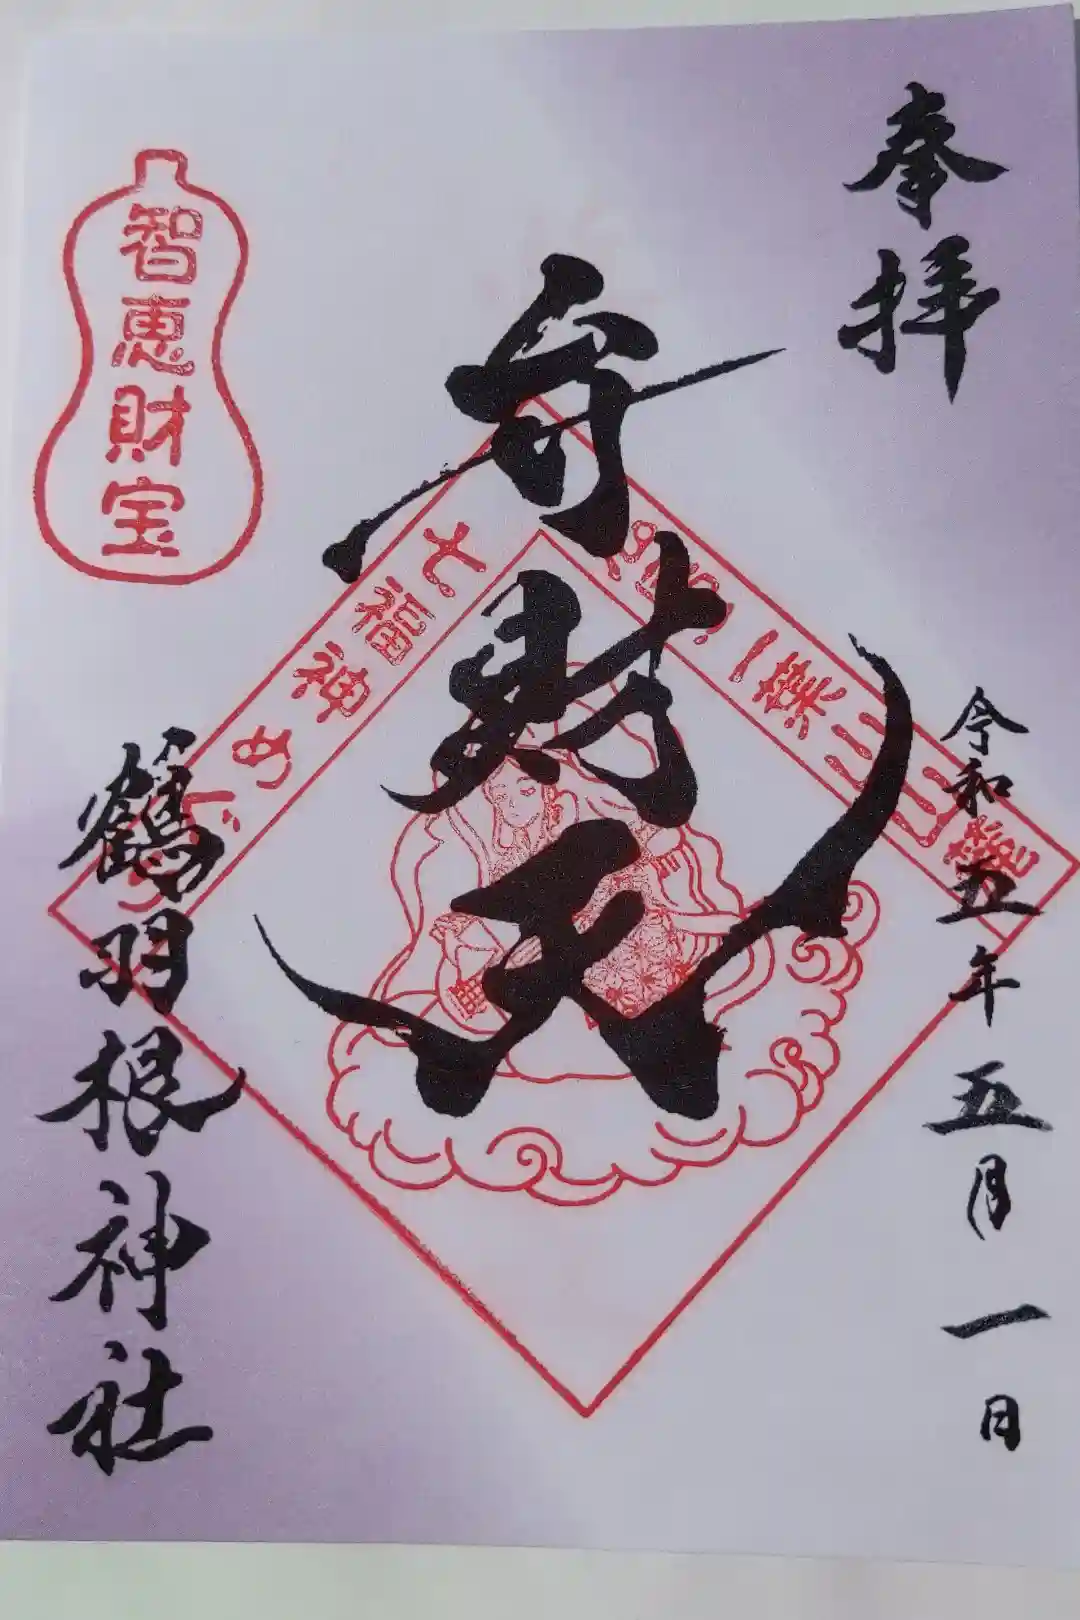 奉拝
令和五年五月一日
弁財天
二葉山山麓
七福神めぐり
智恵財宝
鶴羽根神社